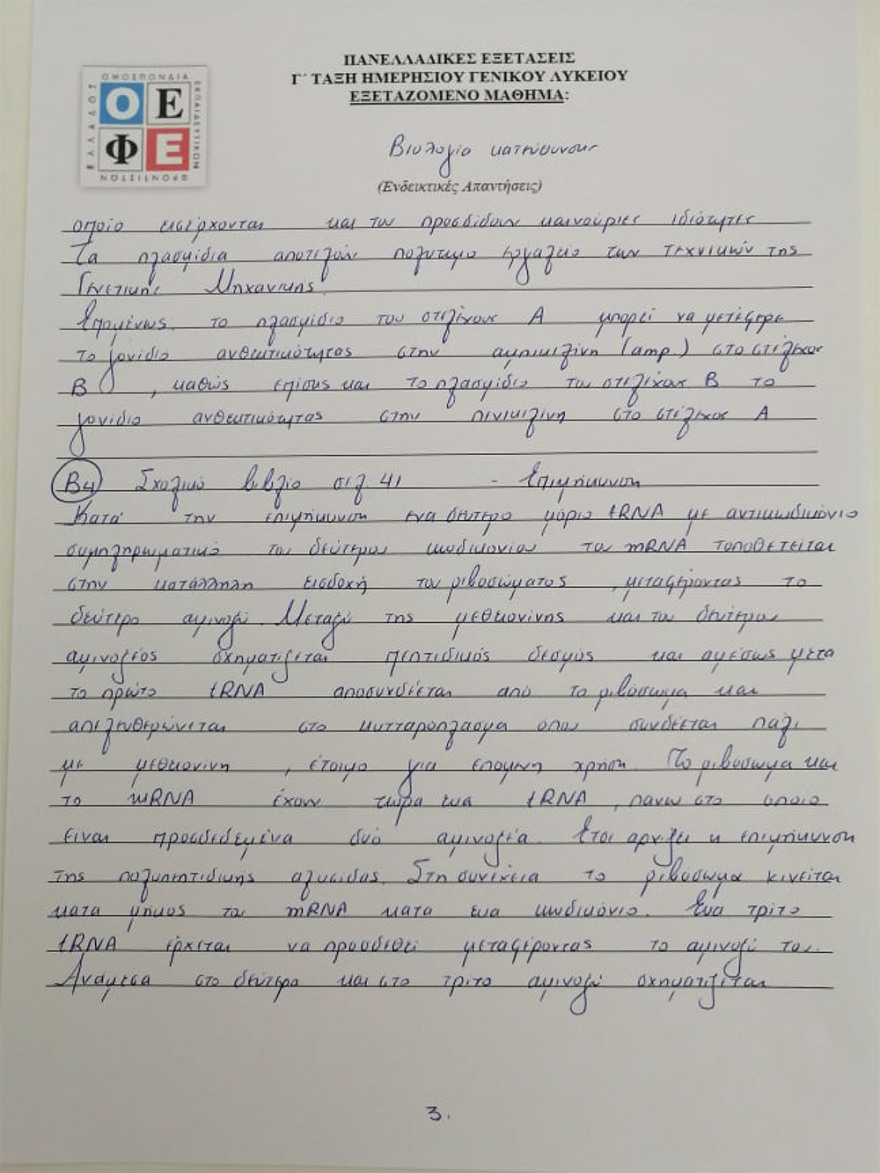 ΟΜΟΣΠΟΝΔΙΑ
ΕΚΠΑΙΔΕΥΤΙΚΩΝ
ΦΡΟΝΤΙΣΤΩΝ
ΕΛΛΑΔΟΣ
Ο Ε
Φ Ε
ΠΑΝΕΛΛΑΔΙΚΕΣ ΕΞΕΤΑΣΕΙΣ
Γ΄ ΤΑΞΗ ΗΜΕΡΗΣΙΟΥ ΓΕΝΙΚΟΥ ΛΥΚΕΙΟΥ
ΕΞΕΤΑΖΟΜΕΝΟ ΜΑΘΗΜΑ:
Βιολογία κατεύθυνσης
(Ενδεικτικές Απαντήσεις)
οποίο εισέρχονται και του προσδίδουν καινούριες ιδιότητες
Τα πλασμίδια αποτελούν πολύτιμο εργαλείο των τεχνικών της
Γενετικής Μηχανικής
Επομένως, το πλασμίδιο του στελέχους Α μπορεί να μετέφερε
το γονίδιο ανθεκτικότητας στην αμπικιλίνη (amp) στο στέλεχος
Β , καθώς επίσης και το πλασμίδιο του στελέχους Β το
γονίδιο ανθεκτικότητας στην πενικιλίνη στο στέλεχος Α
Β4 Σχολικό βιβλίο σελ. 41 - Επιμήκυνση
Κατά την επιμήκυνση ένα δεύτερο μόριο tRNA με αντικωδικόνιο
συμπληρωματικό του δεύτερου κωδικονίου του mRNA τοποθετείται
στην κατάλληλη εισδοχή του ριβοσώματος , μεταφέροντας το
δεύτερο αμινοξύ. Μεταξύ της μεθειονίνης και του δεύτερου
αμινοξέος σχηματίζεται πεπτιδικός δεσμός και αμέσως μετά
το πρώτο tRNA αποσυνδέεται από το ριβόσωμα και
απελευθερώνεται στο κυτταρόπλασμα όπου συνδέεται πάλι
με μεθειονίνη , έτοιμο για επόμενη χρήση. Το ριβόσωμα και
το mRNA έχουν τώρα ένα tRNA, πάνω στο οποίο
είναι προσδεδεμένα δυό αμινοξέα. Έτσι αρχίζει η επιμήκυνση
της πολυπεπτιδικής αλυσίδας. Στη συνέχεια το ριβόσωμα κινείται
κατά μήκος του mRNA κατά ένα κωδικόνιο. Ένα τρίτο
tRNA έρχεται να προσδεθεί μεταφέροντας το αμινοξύ του.
Ανάμεσα στο δεύτερο και στο τρίτο αμινοξύ σχηματίζεται
3.